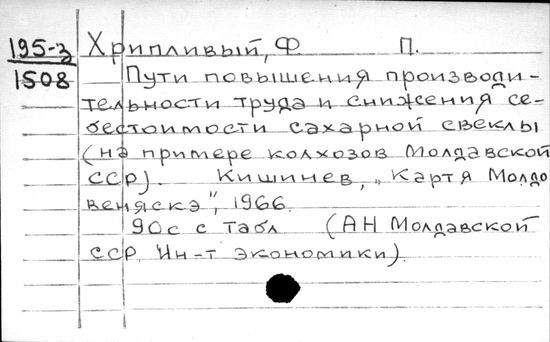 195-з Хрипливый, Ф. П.
1508 Пути повышения производи-
тельности труда и снижения се-
бестоимости сахарной свеклы
(на примере колхозов Молдавской
ССР). Кишинев, „Картя Молдо
веняскэ", 1966.
90с с табл (АН Молдавской
ССР. Ин-т экономики).